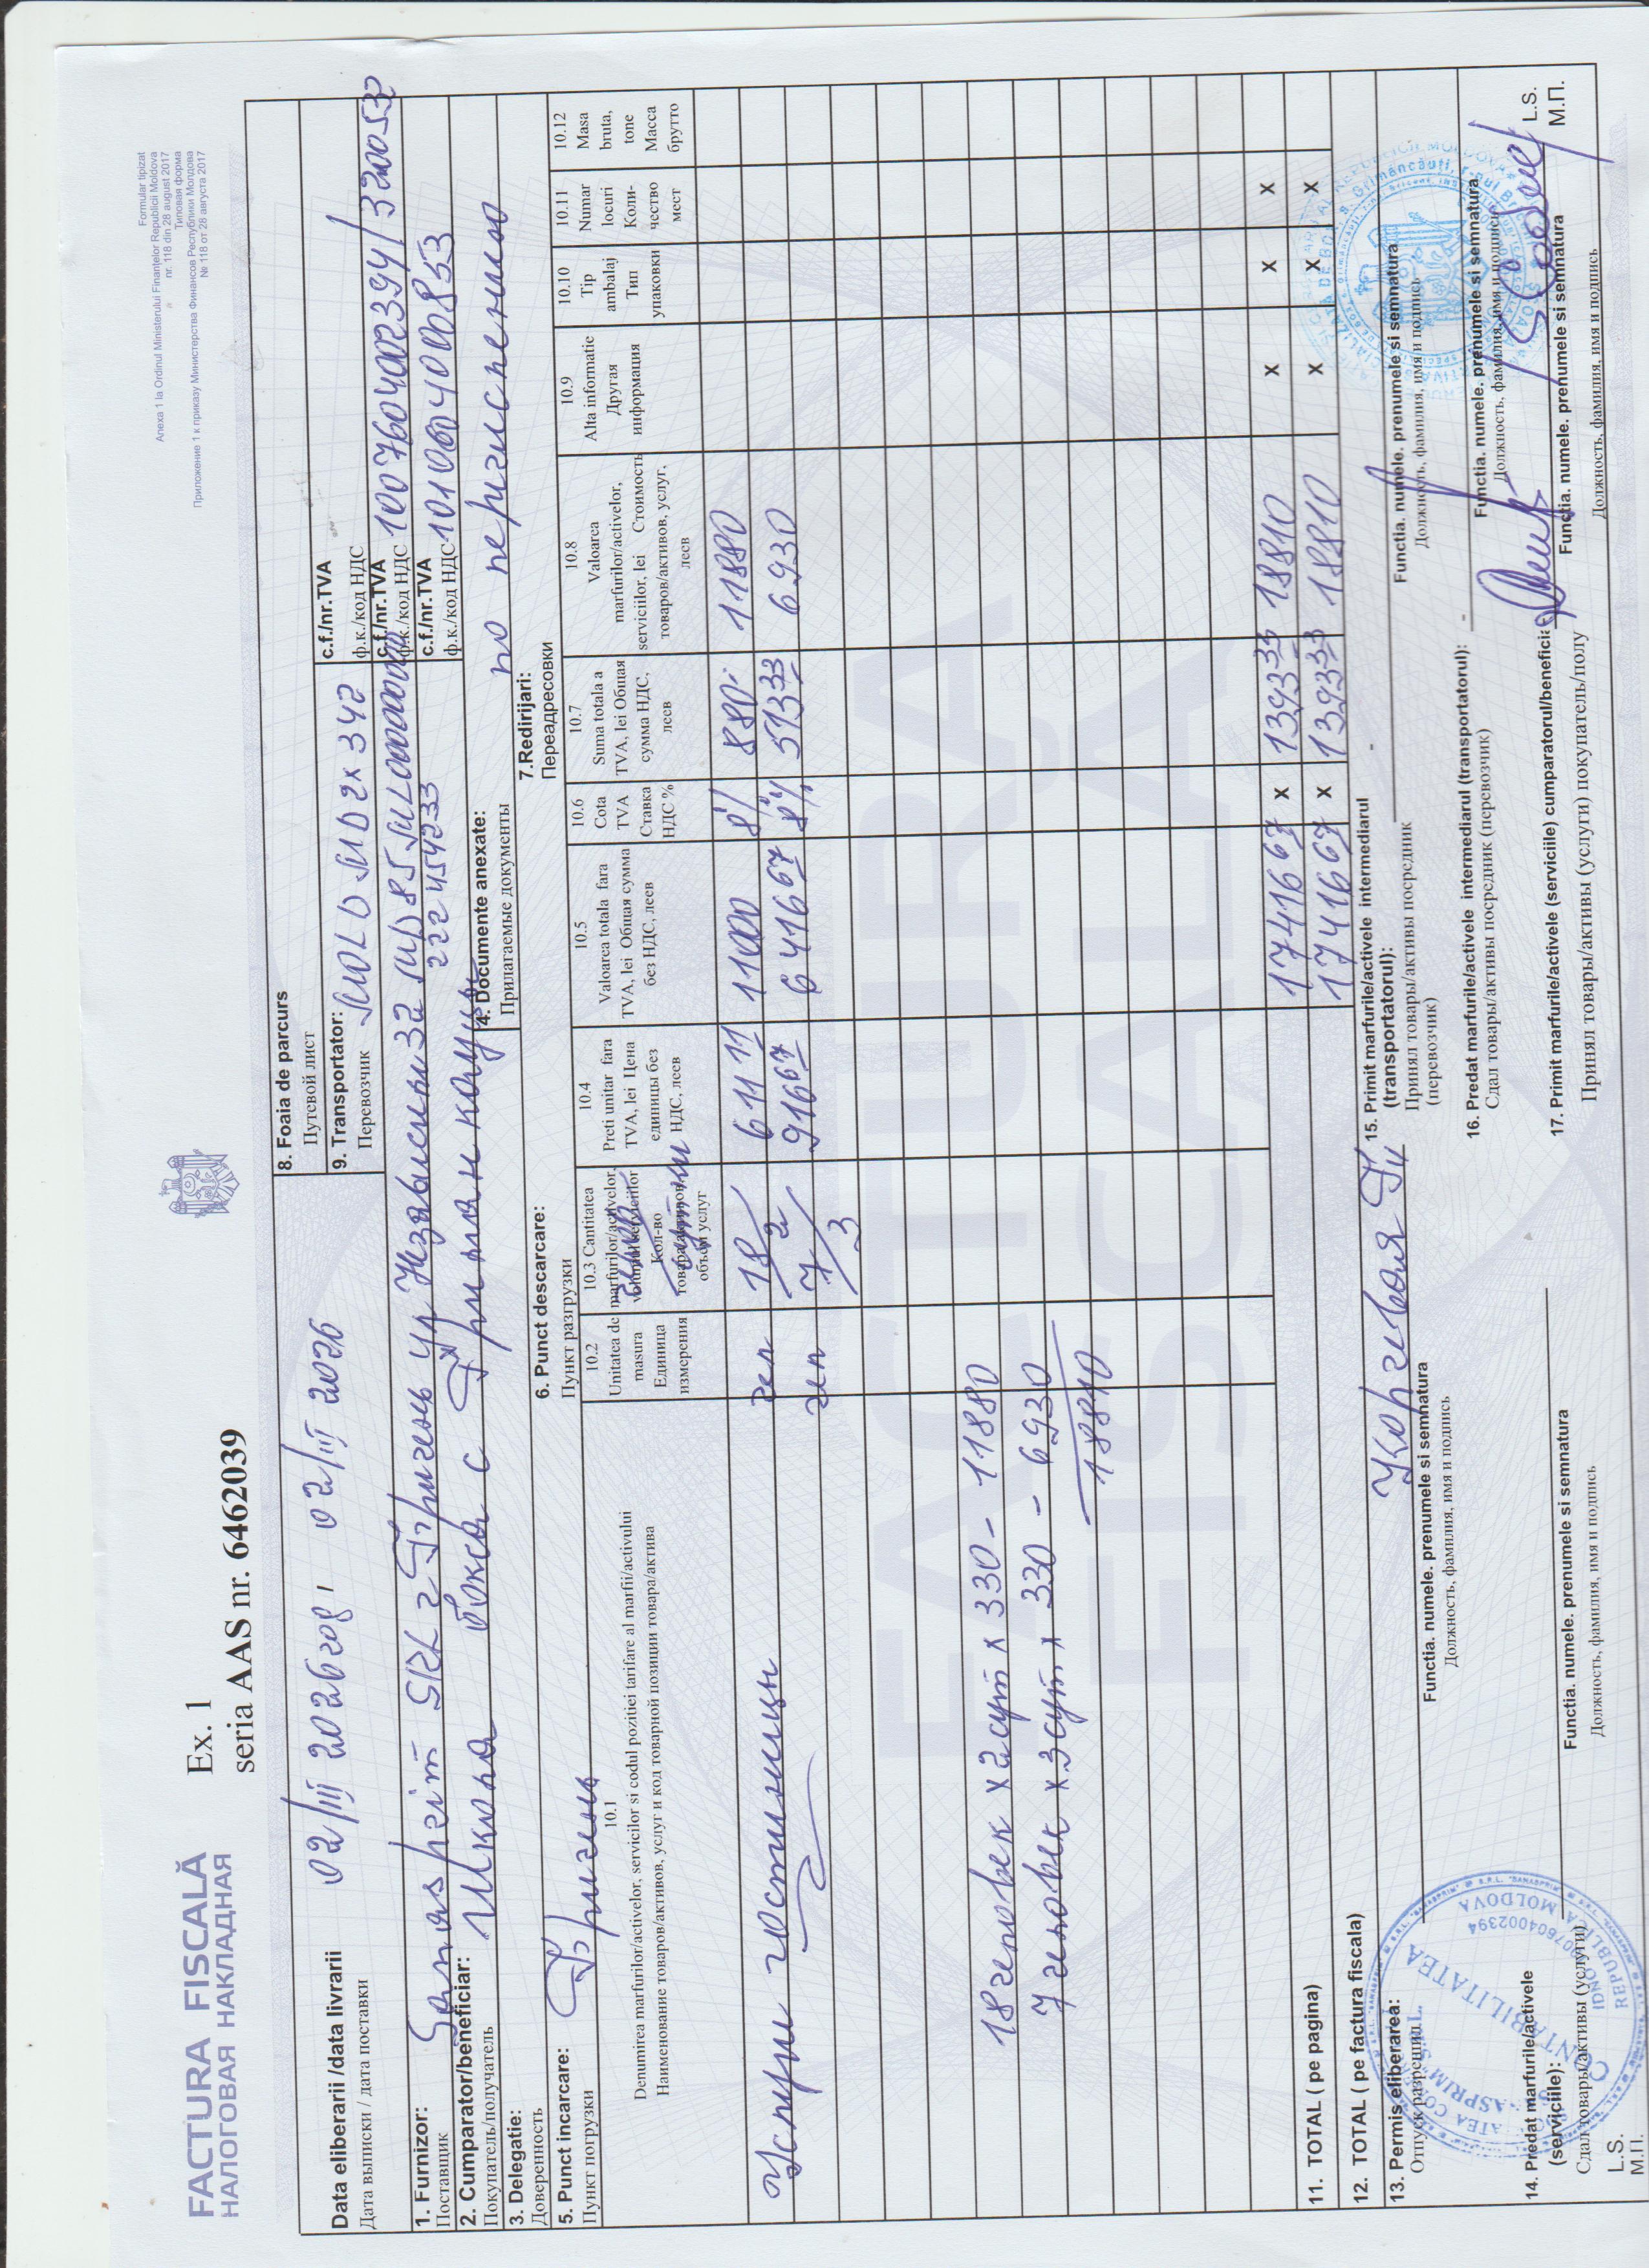 Anexa 1 la Ordinul Ministerului Finanțelor Republicii Moldova
Formular tipizat
nr. 118 din 28 august 2017
Типовая форма
Приложение 1 к приказу Министерства Финансов Республики Молдова
№ 118 от 28 августа 2017
FACTURA FISCALĂ
НАЛОГОВАЯ НАКЛАДНАЯ
Ex. 1
seria AAS nr. 6462039
Data eliberarii /data livrarii
Дата выписки / дата поставки
02/III 2026год, 02/III 2026
8. Foaia de parcurs
Путевой лист
9. Transportator:
Перевозчик
c.f./nr.TVA
ф.к./код НДС
1. Furnizor:
Поставщик
SRL г Бричень ул Независимой
222 454233
c.f./nr.TVA
ф.к./код НДС
1007604002394/3200532
2. Cumparator/beneficiar:
Покупатель/получатель
Школа бокса с Гриманкауць
c.f./nr.TVA
ф.к./код НДС
3. Delegatie:
Доверенность
4. Documente anexate:
Прилагаемые документы
по перечислению
5. Punct incarcare:
Пункт погрузки
Бричень
6. Punct descarcare:
Пункт разгрузки
7.Redirijari:
Переадресовки
10.1
Denumirea marfurilor/activelor, serviciilor si codul pozitiei tarifare al marfii/activului
Наименование товаров/активов, услуг и код товарной позиции товара/актива
10.2
Unitatea de masura
Единица измерения
10.3 Cantitatea marfurilor/activelor, volumul serviciilor
Кол-во товара/активов, объем услуг
сутки
10.4
Preti unitar fara TVA, lei Цена единицы без НДС, леев
10.5
Valoarea totala fara TVA, lei Общая сумма без НДС, леев
10.6
Cota TVA
Ставка НДС %
10.7
Suma totala a TVA, lei Общая сумма НДС, леев
10.8
Valoarea marfurilor/activelor, serviciilor, lei Стоимость товаров/активов, услуг, леев
10.9
Alta informatie
Другая информация
10.10
Tip ambalaj
Тип упаковки
10.11
Numar locuri
Коли-чество мест
10.12
Masa bruta, tone
Масса брутто
Услуги гостиницы чел 18/2 611 11 11000 8% 880- 11880
чел 7/3 916 67 6416 67 8% 513 33 6930
18 человек x 2сут x 330 - 11880
7 человек x 3сут x 330 - 6930
18810
17416 67 x 1393 33 18810 x x x
11. TOTAL ( pe pagina) 17416 67 x 1393 33 18810 x x x
12. TOTAL ( pe factura fiscala)
13. Permis eliberarea:
Отпуск разрешил
Functia. numele. prenumele si semnatura
Должность, фамилия, имя и подпись
14. Predat marfurile/activele (serviciile):
Сдал товары/активы (услуги)
Functia. numele. prenumele si semnatura
Должность, фамилия, имя и подпись
L.S.
М.П.
15. Primit marfurile/activele intermediarul (transportatorul):
Принял товары/активы посредник (перевозчик)
Functia. numele. prenumele si semnatura
Должность, фамилия, имя и подпись
16. Predat marfurile/activele intermediarul (transportatorul):
Сдал товары/активы посредник (перевозчик)
Functia. numele. prenumele si semnatura
Должность, фамилия, имя и подпись
17. Primit marfurile/activele (serviciile) cumparatorul/benefici
Принял товары/активы (услуги) покупатель/полу
Functia. numele. prenumele si semnatura
Должность, фамилия, имя и подпись
L.S.
М.П.
CONTABILITATEA
REPUBLICA MOLDOVA
FACTURA
FISCALA